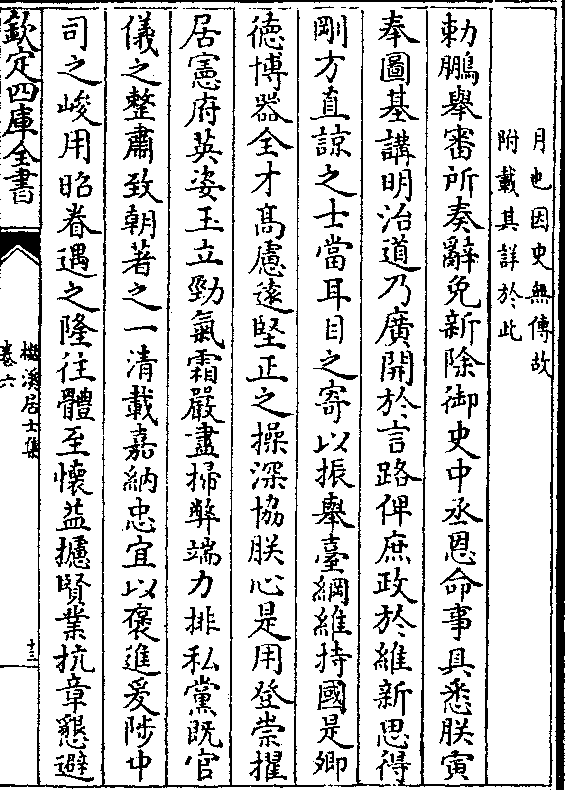 月也因史無傳故
附載其詳於此
勅鵬舉審所奏辭免新除御史中丞恩命事具悉朕寅
奉圖基講明治道乃廣開於言路俾庶政於維新思得
剛方直諒之士當耳目之寄以振舉臺綱維持國是卿
德博器全才髙慮逺堅正之操深協朕心是用登崇擢
居憲府英姿玉立勁氣霜嚴盡掃弊端力排私黨既官
儀之整肅致朝著之一清載嘉納忠宜以褒進爰陟中
司之峻用昭眷遇之隆往體至懷益攄賢業抗章懇避
欽定四庫全書
居士集
卷六
十三